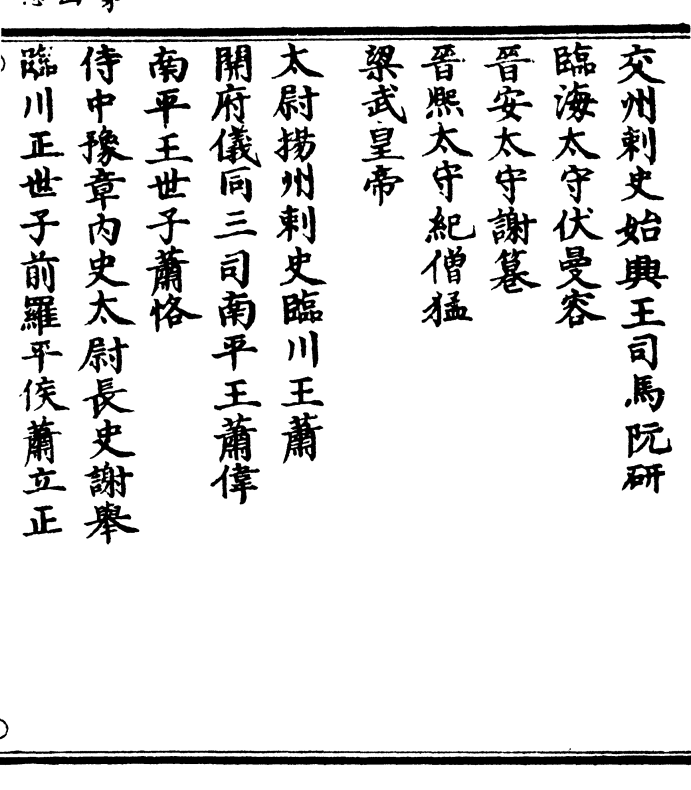 交州刺史始興王司馬阮研
臨海太守伏曼容
晉安太守謝篹
晉熈太守紀僧猛
梁武皇帝
太尉揚州刺史臨川王蕭
開府儀同三司南平王蕭偉
南平王世子蕭恪
侍中豫章内史太尉長史謝舉
臨川正世子前羅平侯蕭立正